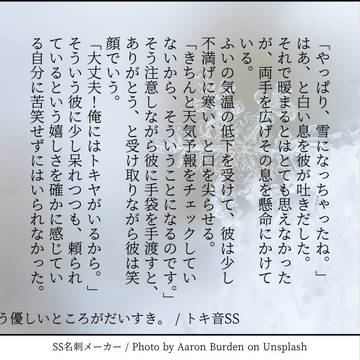 「やっぱり、雪になっちゃったね。」
はあ、と白い息を彼が吐きだした。
それで暖まるとはとても思えなかった
が、両手を広げその息を懸命にかけて
いる。
ふいの気温の低下を受けて、彼は少し
不満げに寒い、と口を尖らせる。
「きちんと天気予報をチェックしてい
ないから、そういうことになるのです。」
そう注意しながら彼に手袋を手渡すと、
ありがとう、と受け取りながら彼は笑
顔でいう。
「大丈夫！俺にはトキヤがいるから。」
そういう彼に少し呆れつつも、頼られ
ているという嬉しさを確かに感じてい
る自分に苦笑せずにはいられなかった。
う優しいところがだいすき。 / トキ音SS
SS名刺メーカー / Photo by Aaron Burden on Unsplash